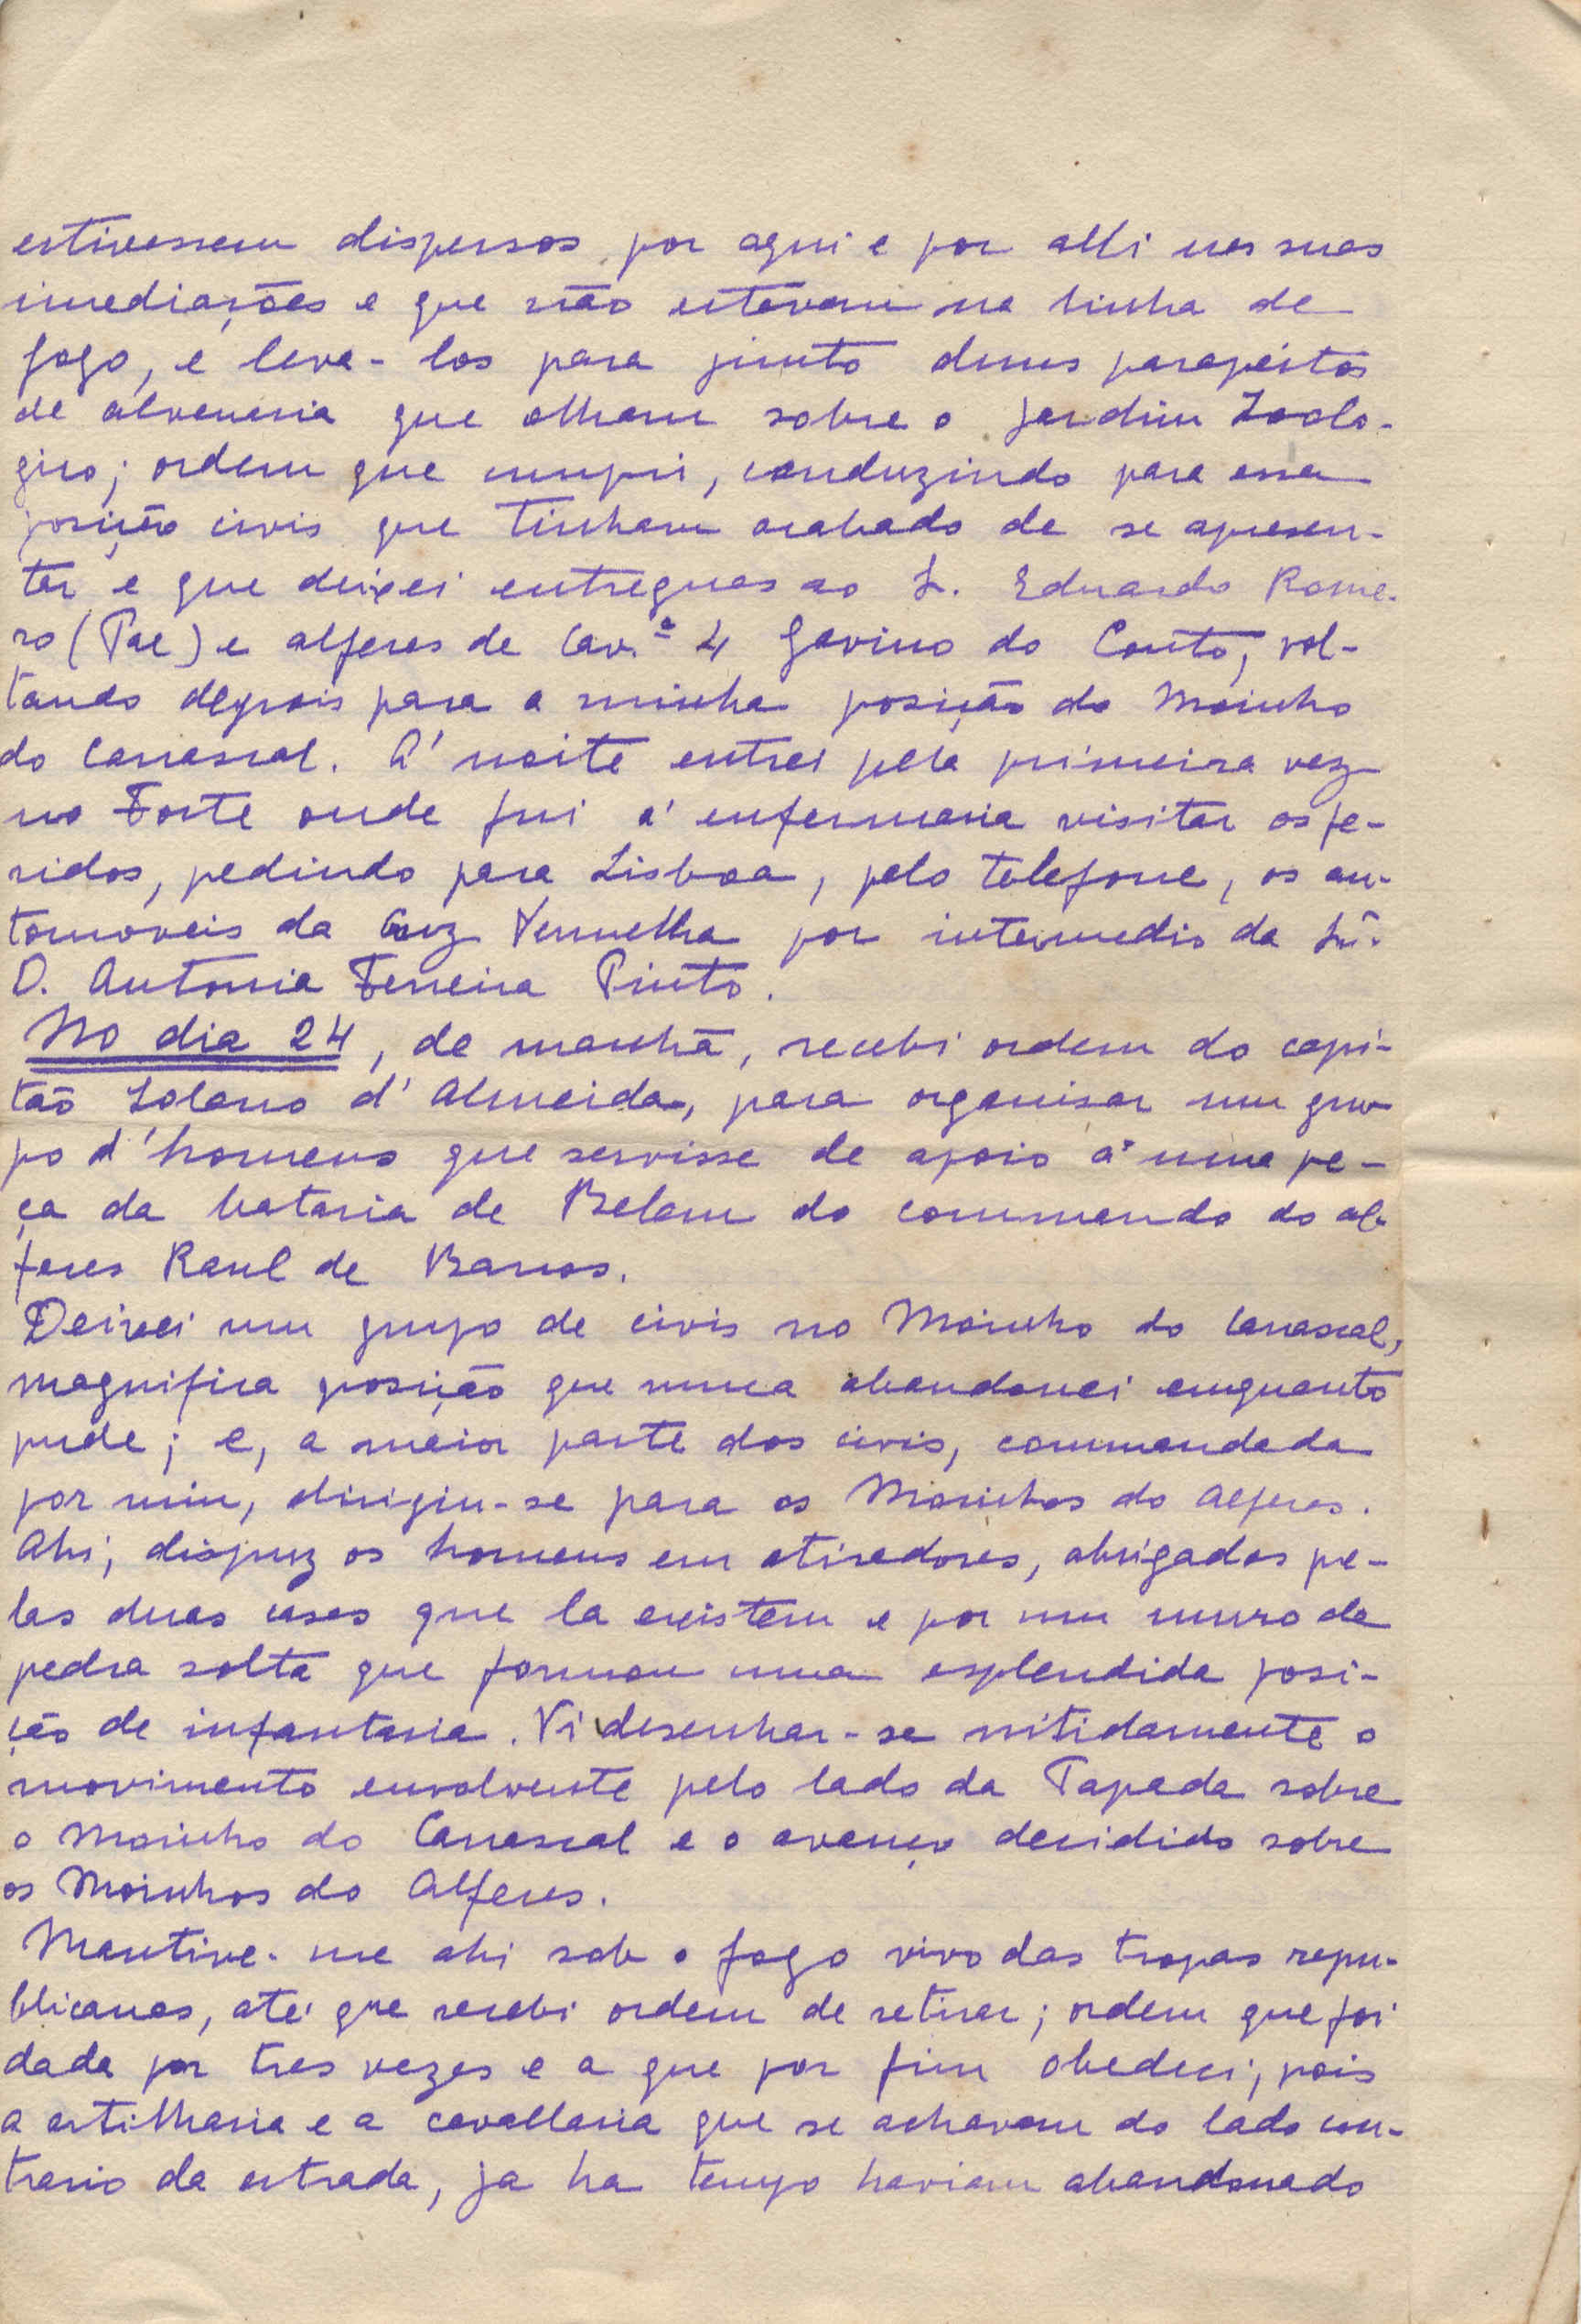 estivessem dispersos por aqui e por alli nas suas
imediações e que não estavam na linha de
fogo, e leva-los para junto duns parapeitos
de alvenaria que olham sobre o Jardim Zoolo-
gico; ordem que cumpri, conduzindo para essa
posição civis que tinham acabado de se apresen-
tar e que deixei entregues ao S. Eduardo Rome-
ro (Pae) e alferes de Cav.ª 4 Gavino do Couto, vol-
tando depois para a minha posição do Moinho
do Carrascal. A' noite entrei pela primeira vez
no Forte onde fui á enfermaria visitar os fe-
ridos, pedindo para Lisboa, pelo telefone, os au-
tomoveis da Cruz Vermelha por intermedio da Sr.ª
D. Antonia Ferreira Pinto.
No dia 24, de manhã, recebi ordem do capi-
tão Solano d'Almeida, para organisar um gru-
po d'homens que servisse de apoio a uma pe-
ça da bataria de Belem do commando do al-
feres Raul de Barros.
Deixei um grupo de civis no Moinho do Carrascal,
magnifica posição que nunca abandonei emquanto
pude; e, a maior parte dos civis, commandada
por mim, dirigiu-se para os Moinhos do Alferes.
Ahi, dispuz os homens em atiradores, abrigados pe-
las duas casas que la existem e por um muro de
pedra solta que formam uma esplendida posi-
ção de infantaria. Vi desenhar-se nitidamente o
movimento envolvente pelo lado da Tapada sobre
o Moinho do Carrascal e o avanço decidido sobre
os Moinhos do Alferes.
Mantive-me ahi sob o fogo vivo das tropas repu-
blicanas, até que recebi ordem de retirar; ordem que foi
dada por tres vezes e a que por fim obedeci, pois
a artilharia e a cavallaria que se achavam do lado con-
trario da estrada, ja ha tempo haviam abandonado